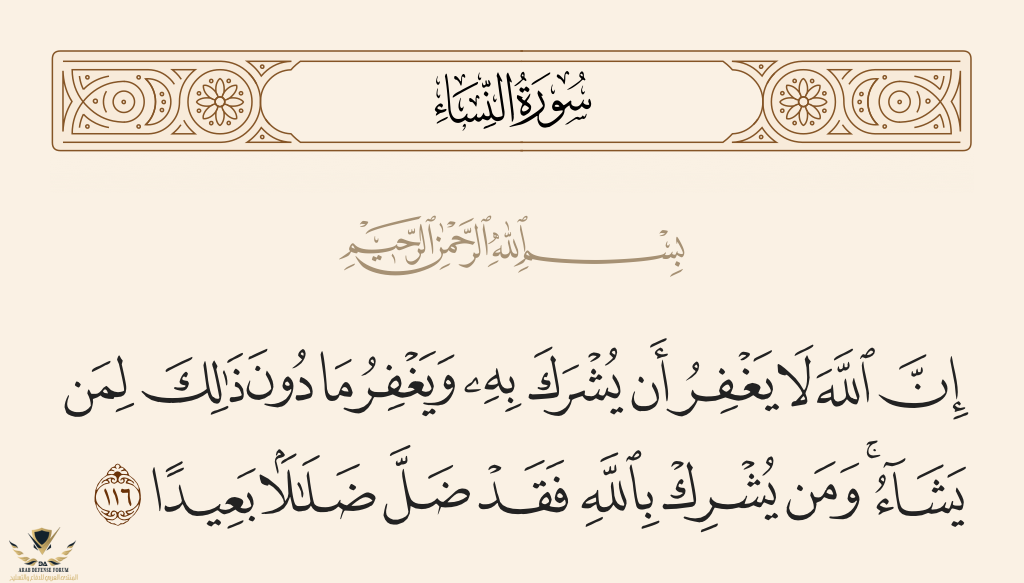 سُورَةُ النِّسَاءِ
بِسْمِ ٱللَّهِ ٱلرَّحْمَٰنِ ٱلرَّحِيمِ
إِنَّ ٱللَّهَ لَا يَغْفِرُ أَن يُشْرَكَ بِهِۦ وَيَغْفِرُ مَا دُونَ ذَٰلِكَ لِمَن
يَشَآءُۚ وَمَن يُشْرِكْ بِٱللَّهِ فَقَدْ ضَلَّ ضَلَٰلًۢا بَعِيدًا ١١٦
ARAB DEFENSE FORUM
المنتدى العربي للدفاع والتسليح